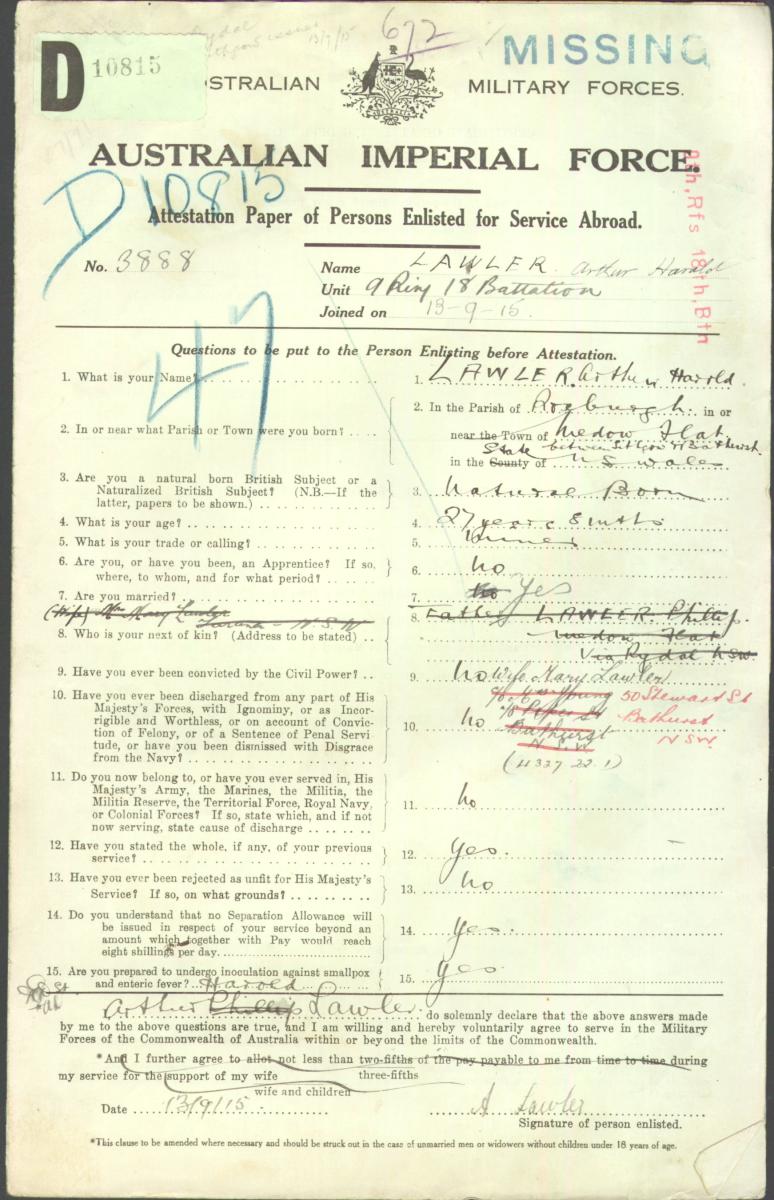 672
MISSING
D 10815
13/9/15
AUSTRALIAN MILITARY FORCES.
AUSTRALIAN IMPERIAL FORCE.
D10815
9th, Rfs 18th, Bth
Attestation Paper of Persons Enlisted for Service Abroad.
No. 3888
Name LAWLER Arthur Harold
Unit 9 Rinf 18 Battalion
Joined on 13-9-15.
47
Questions to be put to the Person Enlisting before Attestation.
1. What is your Name?
1. LAWLER. Arthur Harold.
2. In or near what Parish or Town were you born?
2. In the Parish of Roxburgh in or
near the Town of Medow Flat
State between Lithgow & Bathurst
in the County of N S Wales
3. Are you a natural born British Subject or a
Naturalized British Subject? (N.B.—If the
latter, papers to be shown.)
3. Natural Born
4. What is your age?
4. 27 years 8 mths
5. What is your trade or calling?
5.
6. Are you, or have you been, an Apprentice? If so,
where, to whom, and for what period?
6. No
7. Are you married?
7. No Yes
(Wife) Mrs Mary Lawler
N.S.W
8. Who is your next of kin? (Address to be stated)
8. Father LAWLER. Phillip.
Medow Flat
Via Rydal NSW
9. Have you ever been convicted by the Civil Power?
9. No
Wife Mary Lawler
50 Steward St
Bathurst
NSW.
Bathurst
N.S.W.
(4337 22.1)
10. Have you ever been discharged from any part of His
Majesty's Forces, with Ignominy, or as Incor-
rigible and Worthless, or on account of Convic-
tion of Felony, or of a Sentence of Penal Servi-
tude, or have you been dismissed with Disgrace
from the Navy?
10. No
11. Do you now belong to, or have you ever served in, His
Majesty's Army, the Marines, the Militia, the
Militia Reserve, the Territorial Force, Royal Navy,
or Colonial Forces? If so, state which, and if not
now serving, state cause of discharge
11. No
12. Have you stated the whole, if any, of your previous
service?
12. Yes.
13. Have you ever been rejected as unfit for His Majesty's
Service? If so, on what grounds?
13. No
14. Do you understand that no Separation Allowance will
be issued in respect of your service beyond an
amount which together with Pay would reach
eight shillings per day.
14. Yes.
15. Are you prepared to undergo inoculation against smallpox
and enteric fever?
15. Yes
Harold
I, Arthur Phillip Lawler do solemnly declare that the above answers made
by me to the above questions are true, and I am willing and hereby voluntarily agree to serve in the Military
Forces of the Commonwealth of Australia within or beyond the limits of the Commonwealth.
*And I further agree to allot not less than two-fifths of the pay payable to me from time to time during
three-fifths
my service for the support of my wife
wife and children
Date 13/9/15.
A Lawler
Signature of person enlisted.
*This clause to be amended where necessary and should be struck out in the case of unmarried men or widowers without children under 18 years of age.